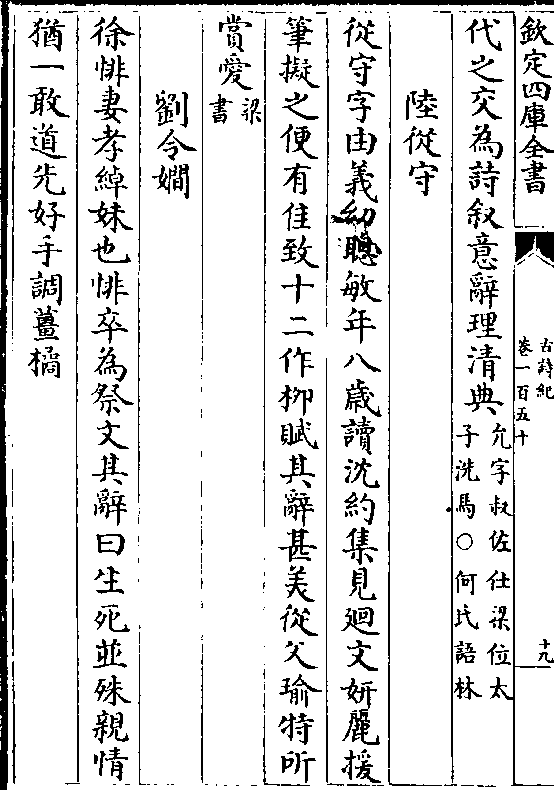 欽定四庫全書
古詩紀
卷一百五十
十九
代之交為詩叙意辭理清典允字叔佐仕梁位太子洗馬○何氏語林
陸從守
從守字由義幼聰敏年八歳讀沈約集見廻文妍麗援
筆擬之便有佳致十二作柳賦其辭甚美從父瑜特所
賞愛梁書
劉令嫺
徐悱妻孝綽妹也悱卒為祭文其辭曰生死並殊親情
猶一敢道先好手調薑橘